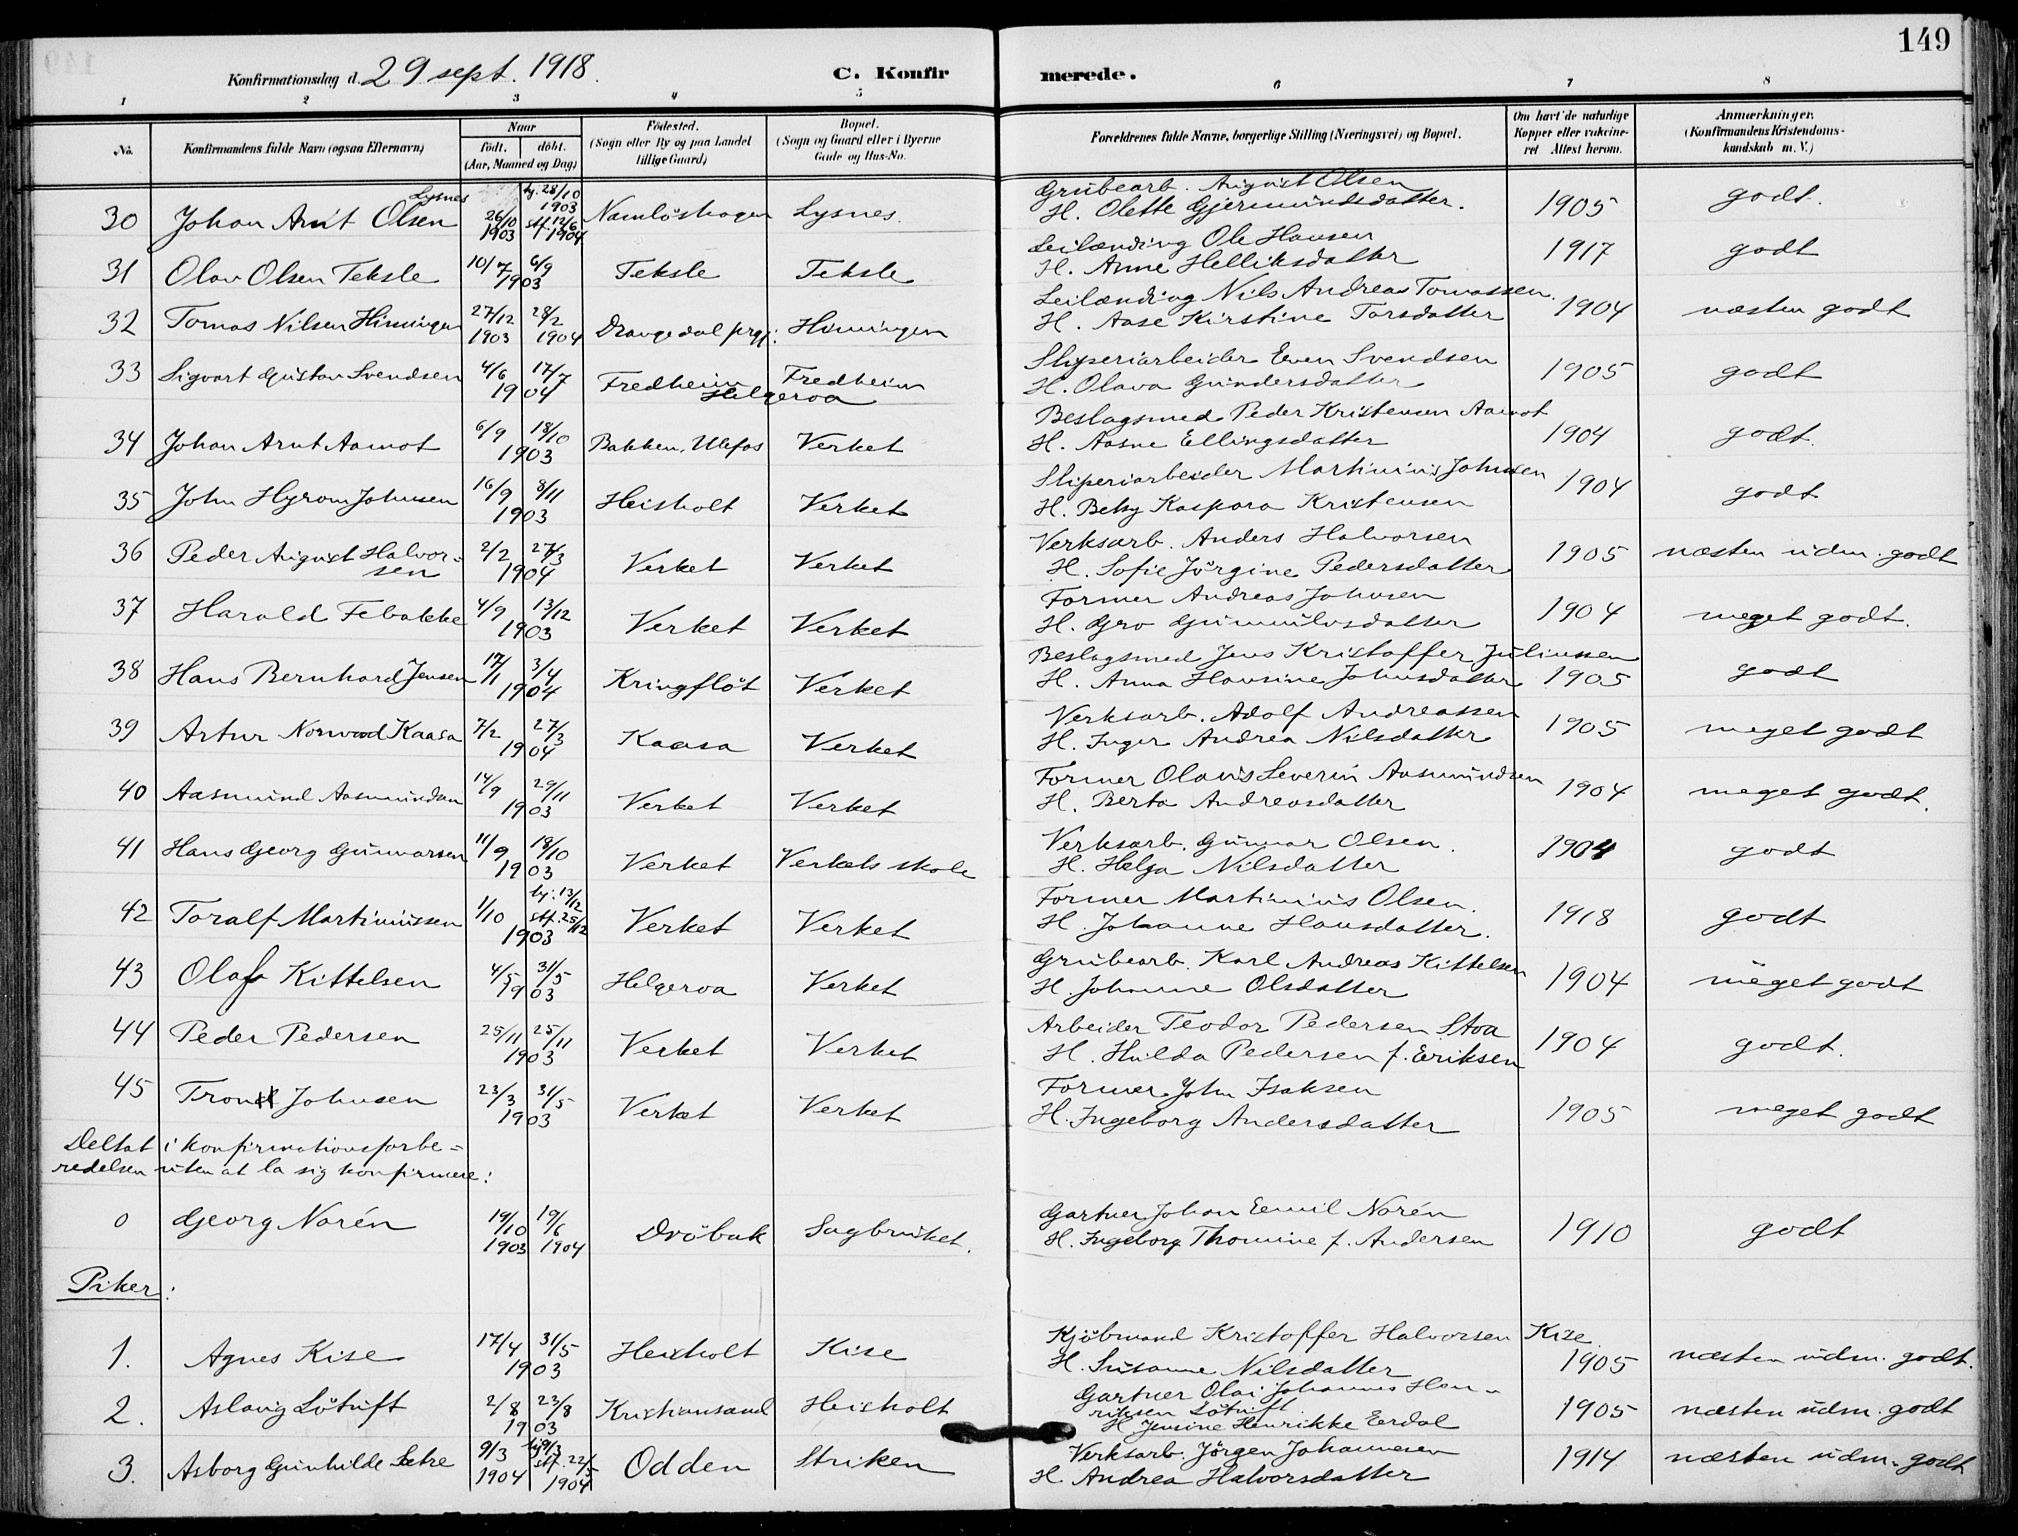 149
Konfirmationsdag d. 29 sept. 1918. C. Konfirmerede.
1 2 3 4 5 6 7 8
No. Konfirmandens fulde Navn (ogsaa Efternavn) Naar født. døbt. (Aar, Maaned og Dag) Fødested. (Sogn eller By og paa Landet tillige Gaard) Bopæl. (Sogn og Gaard eller i Byerne Gade og Hus-No. Forældrenes fulde Navne, borgerlige Stilling (Næringsvei) og Bopæl. Om havt de naturlige Kopper eller vakcineret Attest herom. Anmærkninger. (Konfirmandens Kristendomskundskab m. V.)
Lysnes hj. 28/10 1903 Grubearb. August Olsen
30 Johan Arnt Olsen 26/10 1903 stf. 12/6 1904 Namløshagen Lysnes. H. Olette Gjermundsdatter. 1905 godt.
Leilænding Ole Hansen
31 Olav Olsen Teksle 10/7 6/9 1903 Teksle Teksle H. Anne Helliksdatter 1917 godt
Leilænding Nils Andreas Tomassen.
32 Tomas Nilsen Himingen 27/12 1903 28/2 1904 Drangedal prgj. Himingen H. Aase Kirstine Torsdatter 1904 næsten godt
Sliperiarbeider Even Svendsen
33 Sigvart Gustav Svendsen 4/6 17/7 1904 Fredheim Helgeroa Fredheim H. Olava Gundersdatter 1905 godt
Beslagsmed Peder Kristensen Aamot
34 Johan Arnt Aamot 6/9 18/10 1903 Bakken, Ulefos Verket H. Aasne Ellingsdatter 1904 godt.
Sliperiarbeider Martinius Johnsen
35 John Hyrom Johnsen 16/9 8/11 1903 Heisholt Verket H. Betsy Kaspara Kristensen 1904 godt
Verksarb. Anders Halvorsen
36 Peder August Halvorsen 2/2 27/3 1904 Verket Verket H. Sofie Jørgine Pedersdatter 1905 næsten udm. godt
Former Andreas Johnsen
37 Harald Febakke 4/9 13/12 1903 Verket Verket H. Gro Gunnulvsdatter 1904 meget godt.
Beslagsmed Jens Kristoffer Juliussen
38 Hans Bernhard Jensen 17/1 3/4 1904 Kringfløt Verket H. Anna Hansine Johnsdatter 1905 godt
Verksarb. Adolf Andreassen
39 Artur Norwood Kaasa 7/2 27/3 1904 Kaasa Verket H. Inger Andrea Nilsdatter 1905 meget godt
Former Olavis Severin Aasmundsen
40 Aasmund Aasmundsen 14/9 29/11 1903 Verket Verket H. Berta Andreasdatter 1904 meget godt.
Verksarb. Gunnar Olsen.
41 Hans Georg Gunnarsen 11/9 18/10 1903 Verket Verkets skole H. Helga Nilsdatter 1904 godt
hj. 13/12 Former Martinius Olsen.
42 Toralf Martiniussen 1/10 stf. 25/12 1903 Verket Verket H. Johanne Hansdatter. 1918 godt
Grubearb. Karl Andreas Kittelsen
43 Olaf Kittelsen 4/5 31/5 1903 Helgeroa Verket H. Johanne Olsdatter 1904 meget godt
Arbeider Teodor Pedersen Stoa
44 Peder Pedersen 25/11 25/11 1903 Verket Verket H. Hulda Pedersen f. Eriksen 1904 godt.
Former John Isaksen
45 Trond Johnsen 23/3 31/5 1903 Verket Verket H. Ingeborg Andersdatter 1905 meget godt
Deltat i konfirmationsforbe=
redelsen uten at la sig konfirmere:
Gartner Johan Eemil Norén
0 Georg Norén 19/10 1903 19/6 1904 Drøbak Sagbruket. H. Ingeborg Thomine f. Andersen 1910 godt
Piker:
Kjøbmand Kristoffer Halvorsen Kise
1. Agnes Kise 17/4 31/5 1903 Heisholt Kise H. Susanne Nilsdatter 1905 næsten udm. godt.
Gartner Olai Johannes Hen-
riksen Løtuft
2. Aslaug Løtuft 2/8 23/8 1903 Kristiansand Heisholt H. Jensine Henrikke Eerdal 1905 næsten udm. godt
Verksarb. Jørgen Johannesen
3. Asborg Gunhilde Sætre 9/3 1904 hj. 9/3 stf. 22/5 1904 Odden Striken H. Andrea Halvorsdatter 1914 næsten udm. godt